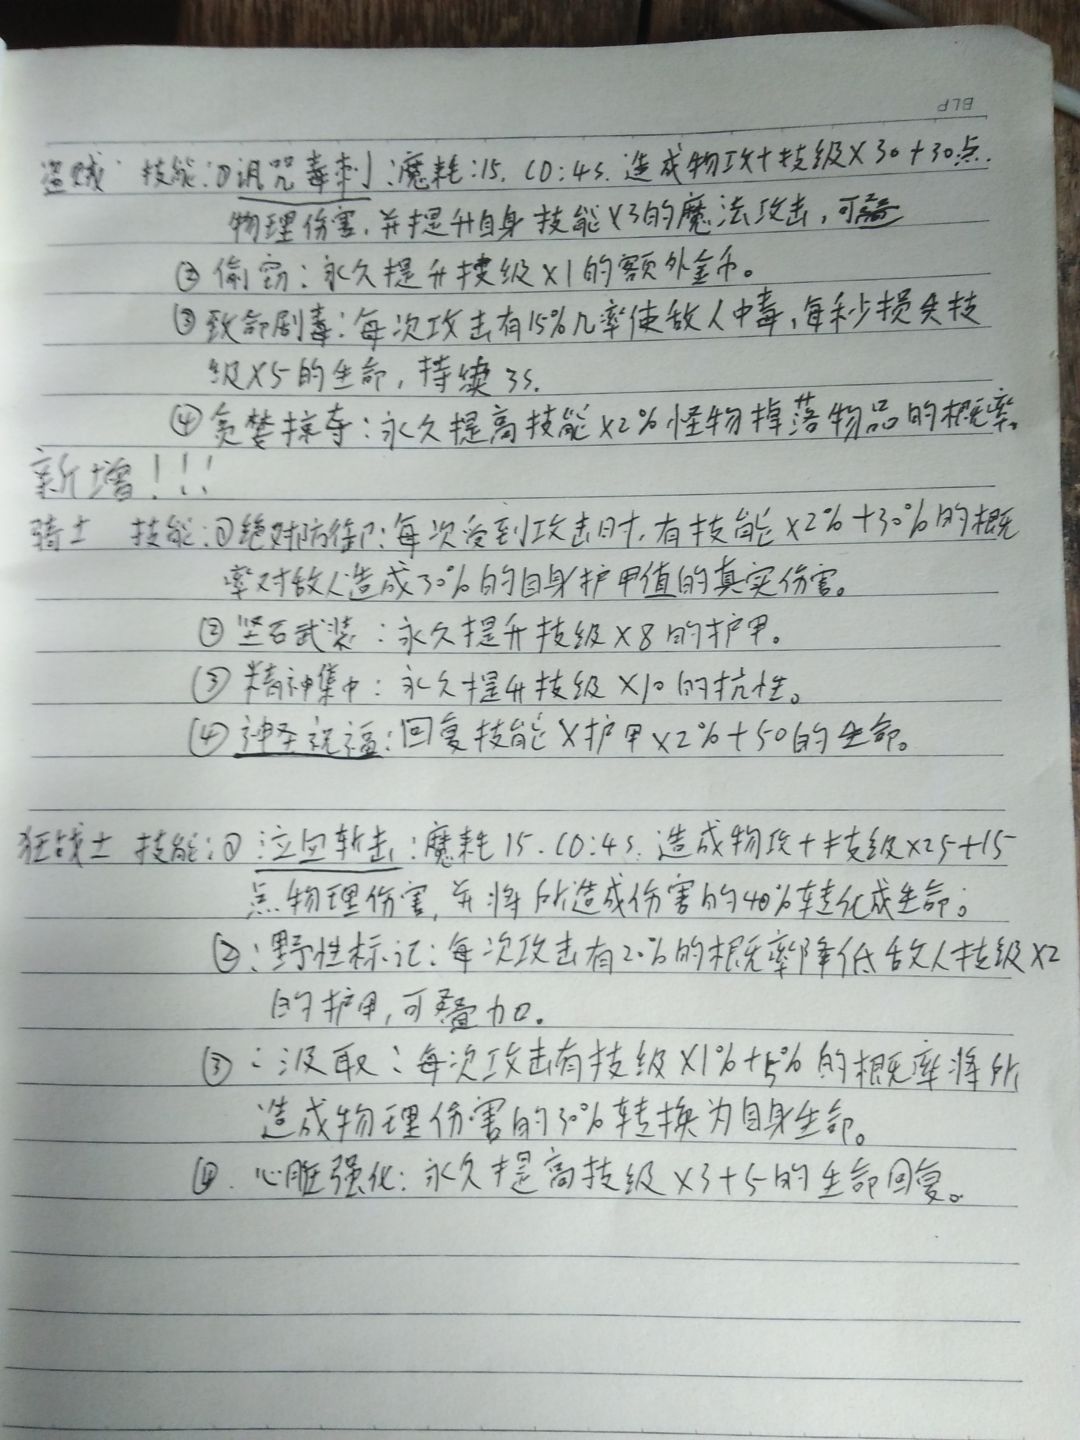 BLP
盗贼: 技能:①诅咒毒刺:魔耗:15. CD:4s. 造成物攻+技级×30+30点.
物理伤害,并提升自身技能×3的魔法攻击,可叠
②偷窃:永久提升技级×1的额外金币。
③致命剧毒:每次攻击有15%几率使敌人中毒,每秒损失技
级×5的生命,持续3s.
④贪婪掠夺:永久提高技能×2%怪物掉落物品的概率。
新增!!!
骑士 技能:①绝对防御:每次受到攻击时,有技能×2%+30%的概
率对敌人造成30%的自身护甲值的真实伤害。
②坚石武装:永久提升技级×8的护甲。
③精神集中:永久提升技级×10的抗性。
④神圣祝福:回复技能×护甲×2%+50的生命。
狂战士 技能:①泣血斩击:魔耗15.CD:4s.造成物攻+技级×25+15
点物理伤害,并将所造成伤害的40%转化成生命。
②:野性标记:每次攻击有20%的概率降低敌人技级×2
的护甲,可叠加。
③:汲取:每次攻击有技级×1%+5%的概率将所
造成物理伤害的30%转换为自身生命。
④.心脏强化:永久提高技级×3+5的生命回复。